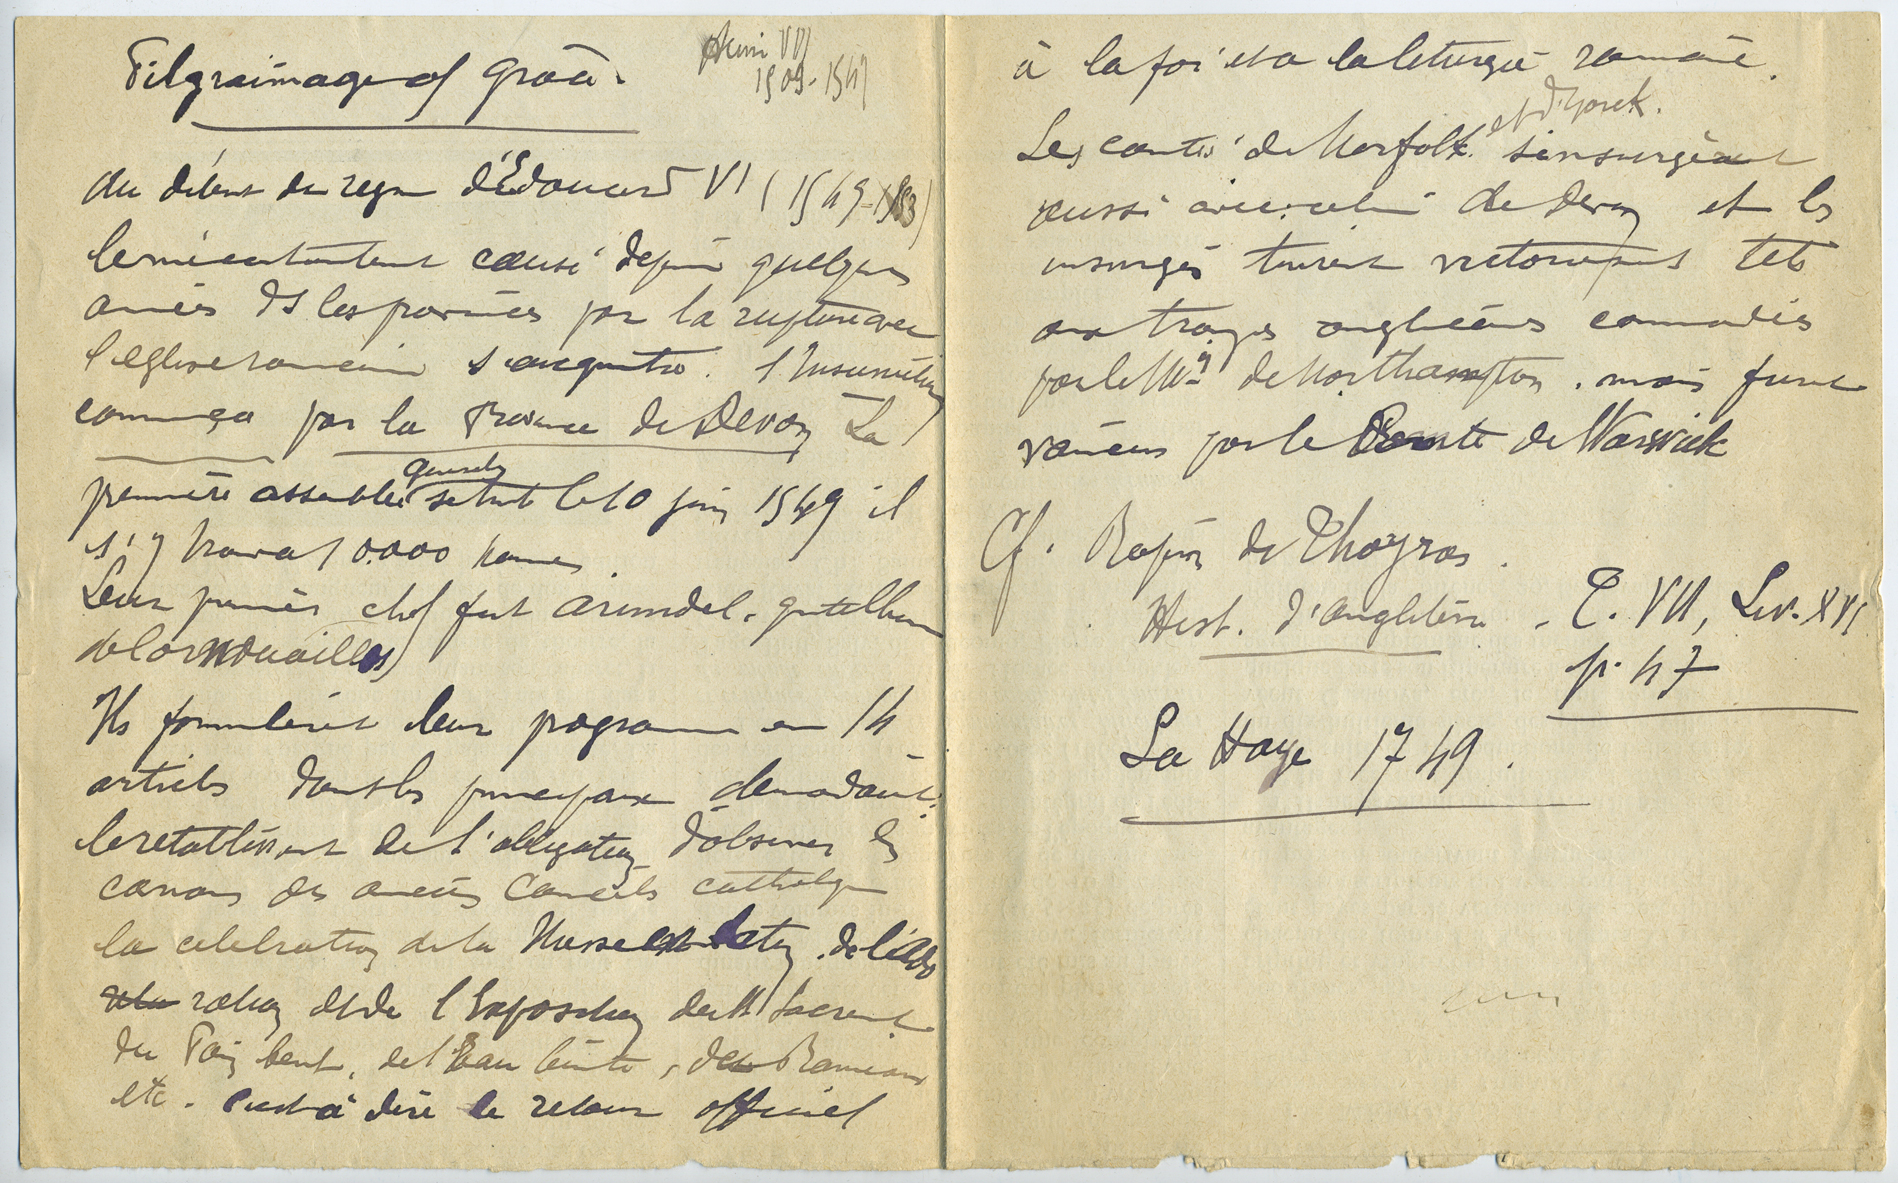 Pilgraimage of Grace.
Henri VIII
1509-1547
Au début du règne d'Edouard VI (1549-1553)
le mécontentement causé depuis quelques
années ds les provinces par la rupture avec
l'eglise romaine s'augmenta. l'Insurrection
commença par la Province de Devon. La
première assemblée générale se tint le 10 juin 1549 il
s'y trouva 10.000 hommes.
Leur premier chef fut Arundel, gentilhomme
de Cornouailles
Ils formulèrent leur programme en 14
articles dont les principaux demandaient:
le retablissement de l'obligation d'observer les
canons des anciens Conciles catholiques
la celebration de la Messe en latin, de l'Ado
ration et de l'Exposition du St Sacrement
du Pain benit, de l'Eau bénite, des Rameaux
etc. c'est à dire le retour officiel
à la foi et a la leturgie romaine.
Les comtés de Norfolk et d'York. s'insurgèrent
aussi avec celui de Devon et les
insurgés tinrent victorieusement tete
aux troupes anglicanes commandées
par le Mis de Northampton. mais furent
vaincus par le Comte de Warwick
Cf. Rapin de Thoyras.
Hist. d'Angleterre. T. VII, Liv. XVI
p. 47
La Haye 1749.